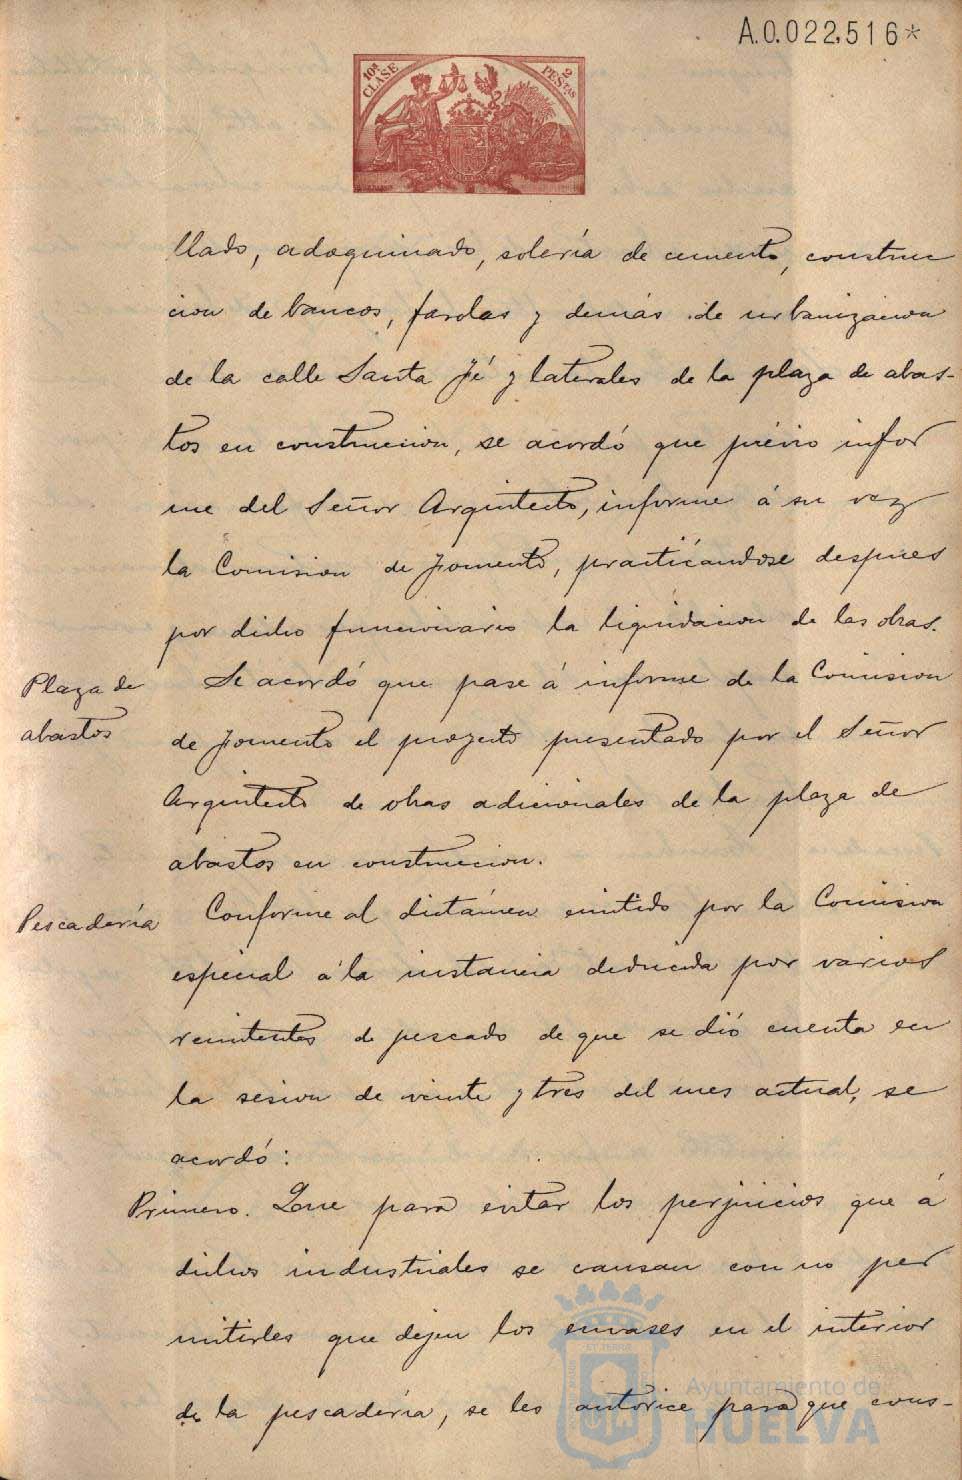 A.0.022,516*
10ª CLASE
2 PESTAS
llado, adoquinado, solería de cemento, construc
cion de bancos, farolas y demás de urbanizacion
de la calle Santa Fé y laterales de la plaza de abas-
tos en construccion, se acordó que prévio infor
me del Señor Arquitecto, informe á su vez
la Comision de Fomento, practicándose despues
por dicho funcionario la liquidacion de las obras.
Plaza de
abastos
Se acordó que pase á informe de la Comision
de Fomento el proyecto presentado por el Señor
Arquitecto de obras adicionales de la plaza de
abastos en construccion.
Pescadería
Conforme al dictámen emitido por la Comision
especial á la instancia deducida por varios
remitentes de pescado de que se dió cuenta en
la sesion de veinte y tres del mes actual, se
acordó:
Primero. Que para evitar los perjuicios que á
dichos industriales se causan con no per
mitirles que dejen los envases en el interior
de la pescadería, se les autorice para que cons-
Ayuntamiento de
HUELVA